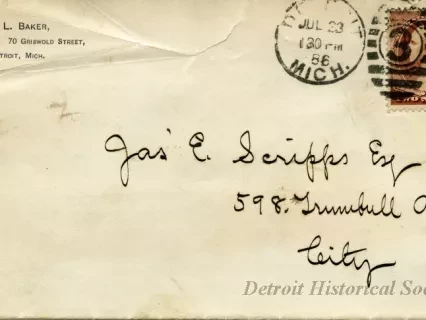 L. BAKER,
70 GRISWOLD STREET,
TROIT, MICH.
DETROIT
JUL 23
1 30 PM
86
MICH.
3
Jas E. Scripps Esq
598. Trumbull A
City
Detroit Historical Soc